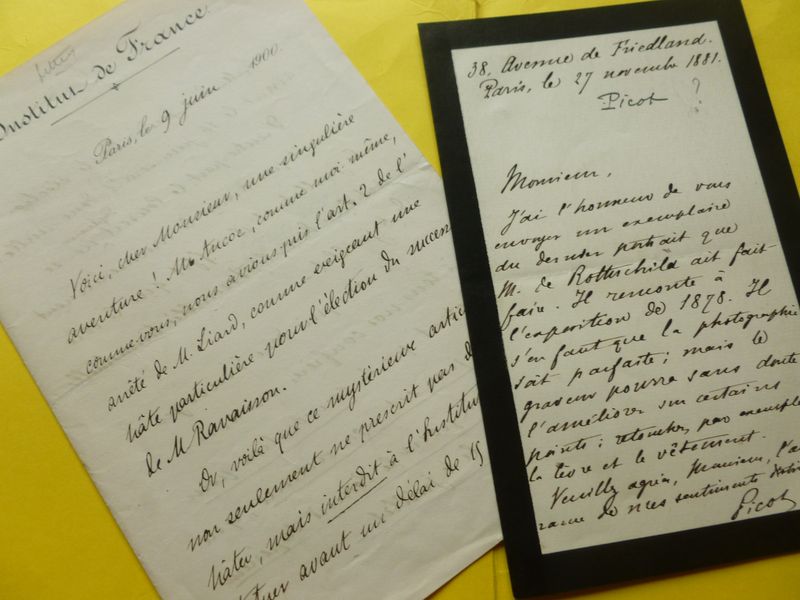 Institut de France
Paris, le 9 juin 1900.
Voici, cher Monsieur, une singulière
aventure ! M. Aucoc, comme moi même,
comme vous, nous avions pris l'art. 2 de l'
arrêté de M. Liard, comme exigeant une
hâte particulière pour l'élection du success
de M Ravaisson.
Or, voilà que ce mystérieux artic
non seulement ne prescrit pas d
hâter, mais interdit à l'Institut
avant un délai de 15
38, Avenue de Friedland.
Paris, le 27 novembre 1881.
Picot ?
Monsieur,
J'ai l'honneur de vous
envoyer un exemplaire
du dernier portrait que
M. de Rothschild ait fait
faire. Il remonte à
l'exposition de 1878. Il
s'en faut que la photographie
soit parfaite ; mais le
graveur pourra sans doute
l'améliorer sur certains
points ; retoucher par exemple
la lèvre et le vêtement.
Veuillez agréer, Monsieur, l'as
rance de mes sentiments
Picot